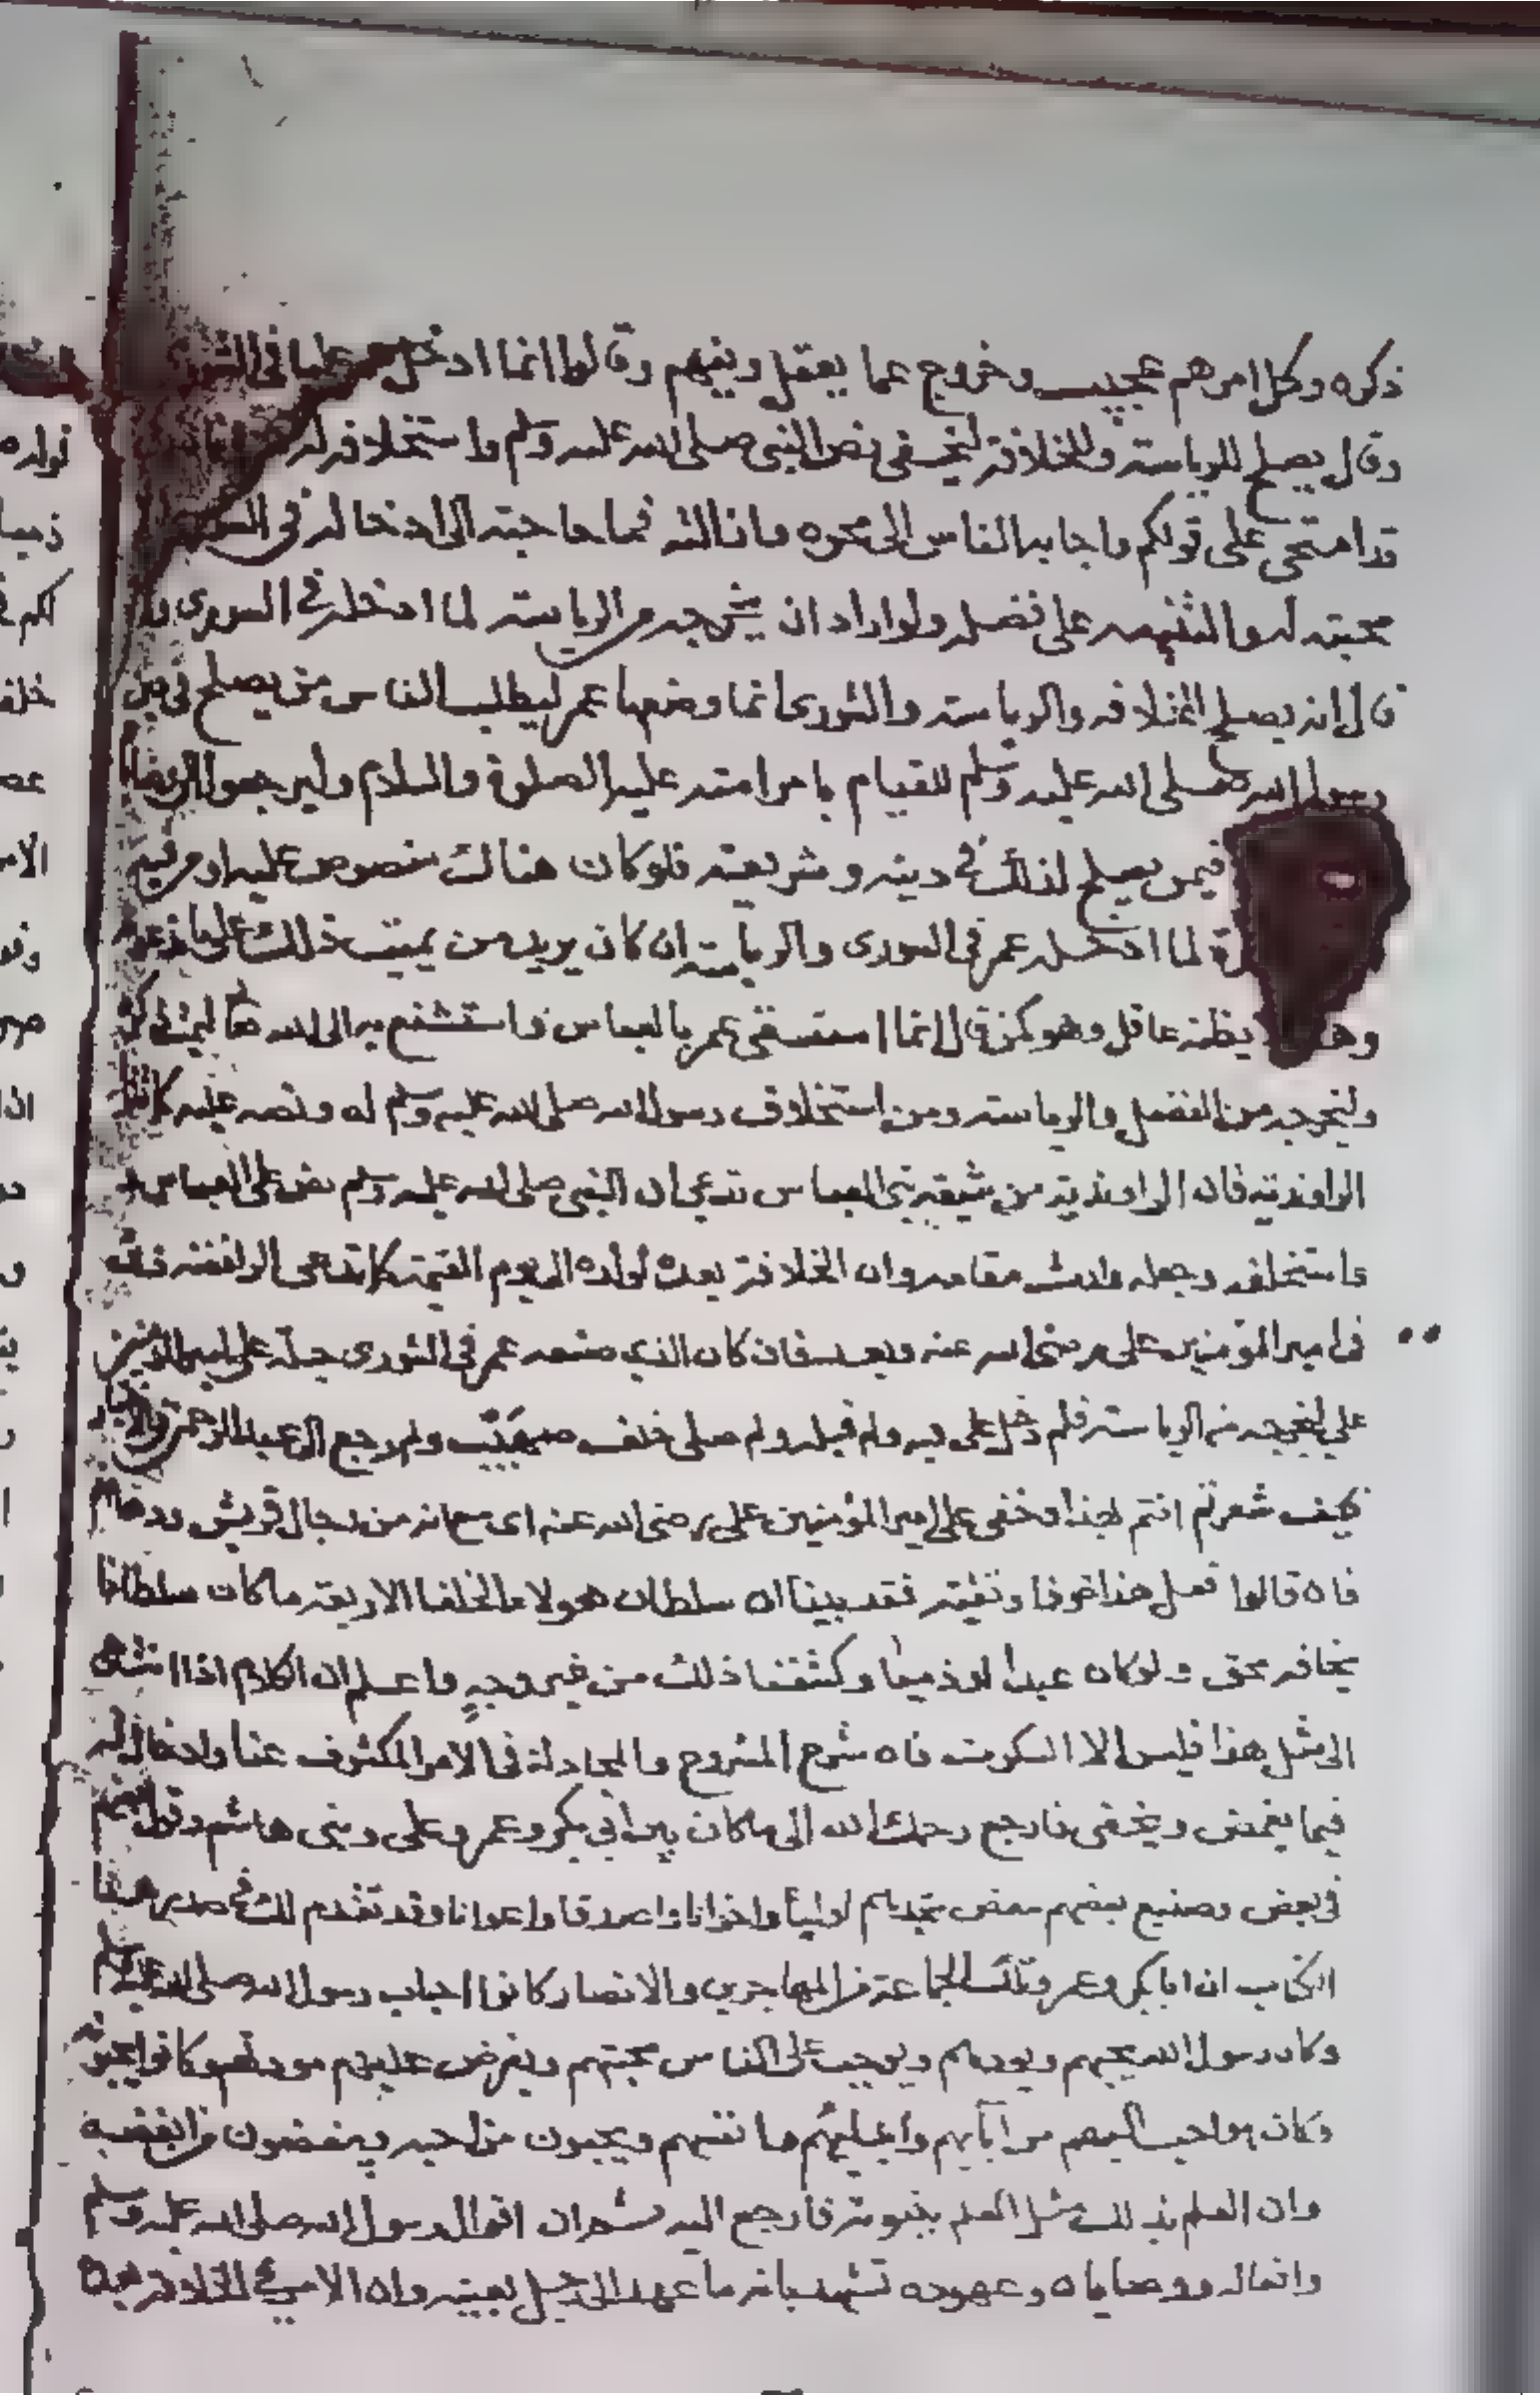 ذكره وكل امرهم عجيب وخروج عما يعقل ويفهم وقالوا انما ادخل عليا في الشورى
وقال يصلح للرياسة وللخلافة ليخفى نص النبي صلى الله عليه وسلم واستخلافه له
قد امتحى على قولكم واجابه الناس الى محوه فما حاجته الى ادخاله في الشورى
محبته له والتنبيه على فضله ولو اراد ان يخرجه من الرياسة لما ادخله في الشورى ولا
قال انه يصلح للخلافة والرياسة والشورى انما وضعها عمر ليطلب الناس من يصلح في دين
رسول الله صلى الله عليه وسلم للقيام بامر امته عليه الصلوة والسلام وليرجعوا الى
فيمن يصلح لذلك في دينه وشريعته فلو كان هناك منصوص عليه او من فيه
لما ادخله عمر في الشورى والرياسة ان كان يريد من يميت ذلك على ما
يظنه عاقل وهو كمن قال انما استسقى عمر بالعباس واستشفع به الى الله
وليخرجه من الفضل والرياسة ومن استخلاف رسول الله صلى الله عليه وسلم له ونصه عليه
الراوندية فان الراوندية من شيعة بني العباس تدعي ان النبي صلى الله عليه وسلم نص على العباس
واستخلفه وجعله وارث مقامه وان الخلافة بعده لولده الى يوم القيمة كما تدعي الرافضة
في امير المؤمنين علي رضي الله عنه وبعد فان كان الذي صنعه عمر في الشورى حيلة على امير المؤمنين
علي ليخرجه من الرياسة فلم دخل علي فيه ولم قبله ولم صلى خلف صهيب ولم رجع الى عبد الرحمن
كيف شعرتم انتم لهذا وخفي على امير المؤمنين علي رضي الله عنه اي مع انه من رجال قريش
فان قالوا فعل هذا خوفا وتقية فقد بينا ان سلطان هولاء الخلفا الاربعة ما كان سلطانا
يخافه محق ولو كان عبدا او ذميا وكشفنا ذلك من غير وجه واعلم ان الكلام اذا
الى مثل هذا فليس الا السكوت فان شرح المشروح والمجادلة في الامر المكشوف عنا
فيما يغمض ويخفى فارجع رحمك الله الى ما كان بين ابي بكر وعمر وعلي وبني هاشم
في بعض وصنيع بعضهم ببعض تجدهم اوليا واخوانا واصدقا واعوانا وقد تقدم لك في صدر
الكتاب ان ابا بكر وعمر وتلك الجماعة من المهاجرين والانصار كانوا احباب رسول الله صلى الله عليه وسلم
وكان رسول الله يحبهم ويودهم ويوجب على الناس محبتهم ويفرض عليهم مودتهم وكانوا يحبونه
وكان احب اليهم من آبائهم وابنائهم وانفسهم ويحبون من احبه ويبغضون من ابغضه
وان العلم بذلك مثل العلم بنبوته فارجع اليه ان اقوال رسول الله صلى الله عليه وسلم
وافعاله ووصاياه وعهوده تشهد بانه ما عهد الى رجل بعينه وان الامر في الخلافة بعده